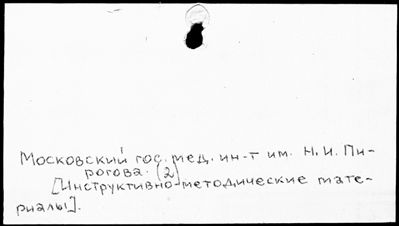 Московский гос. мед. ин-т им. Н.И. Пи-
рогова. (2)
[Инструктивно-методические мате-
риалы].